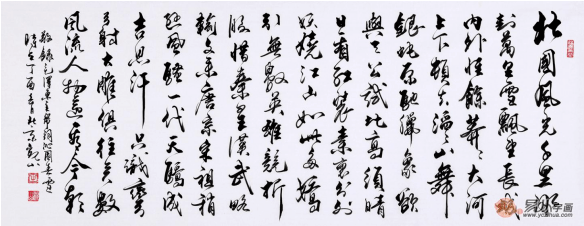 北國風光千里冰
封萬里雪飄望長城
内外惟餘莽莽大河
上下頓失滔滔山舞
銀蛇原馳臘象欲
與天公試比高須晴
日看紅裝素裹分外
妖嬈江山如此多嬌
引無數英雄競折
腰惜秦皇漢武略
輸文采唐宗宋祖稍
遜風騷一代天驕成
吉思汗只識彎
弓射大雕俱往矣數
風流人物還看今朝
敬錄毛澤東主席詞沁園春雪
時在丁酉春於北京
字画
www.yczihua.com